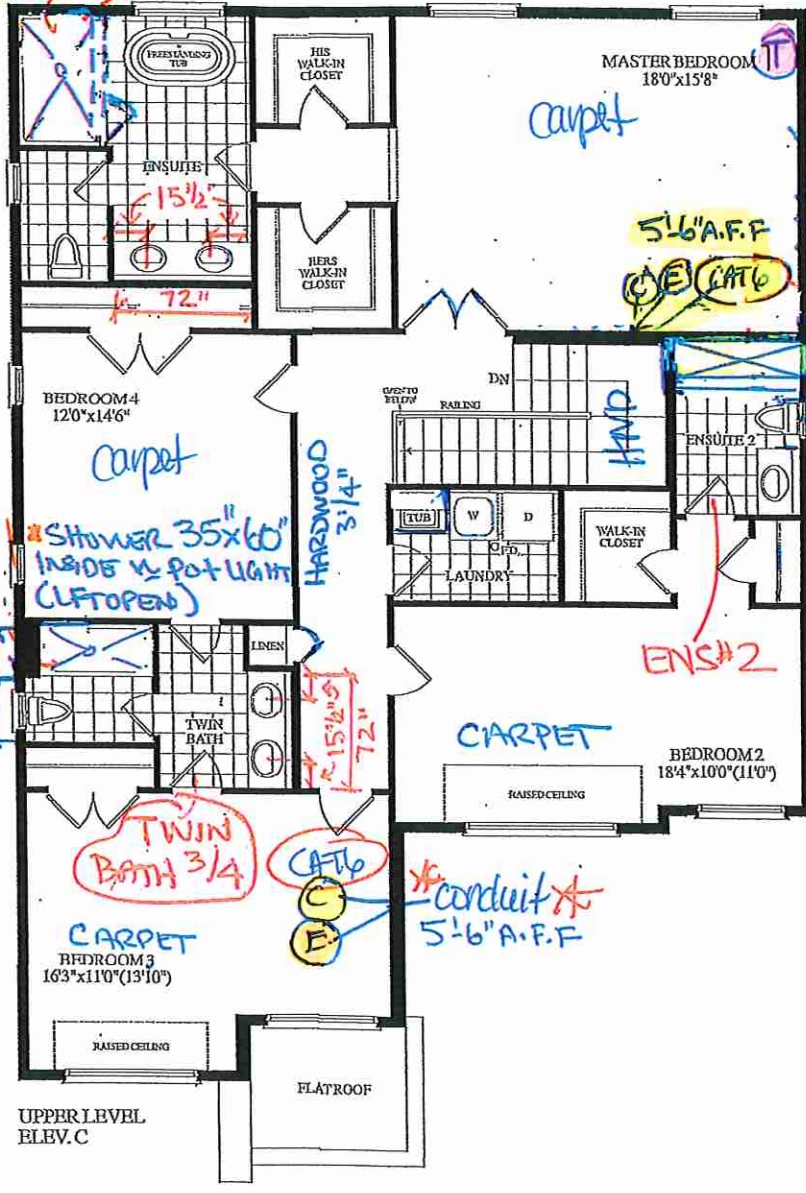 FREESTANDING
TUB
HIS
WALK-IN
CLOSET
MASTER BEDROOM
18'0"x15'8"
T
carpet
ENSUITE
15 1/2"
5'-6" A.F.F
C E CAT6
HERS
WALK-IN
CLOSET
72"
BEDROOM 4
12'0"x14'6"
carpet
OPEN TO
BELOW
DN
RAILING
HWD
ENSUITE 2
HARDWOOD
3 1/4"
TUB
W
D
F.D.
LAUNDRY
WALK-IN
CLOSET
*SHOWER 35"x60"
INSIDE W POT LIGHT
(LFT OPEN)
LINEN
ENS#2
TWIN
BATH
15 1/2"
72"
CARPET
BEDROOM 2
18'4"x10'0"(11'0")
RAISED CEILING
TWIN
BATH 3/4
CAT6
C
E
*conduit*
5'-6" A.F.F
CARPET
BEDROOM 3
16'3"x11'0"(13'10")
RAISED CEILING
FLAT ROOF
UPPER LEVEL
ELEV. C